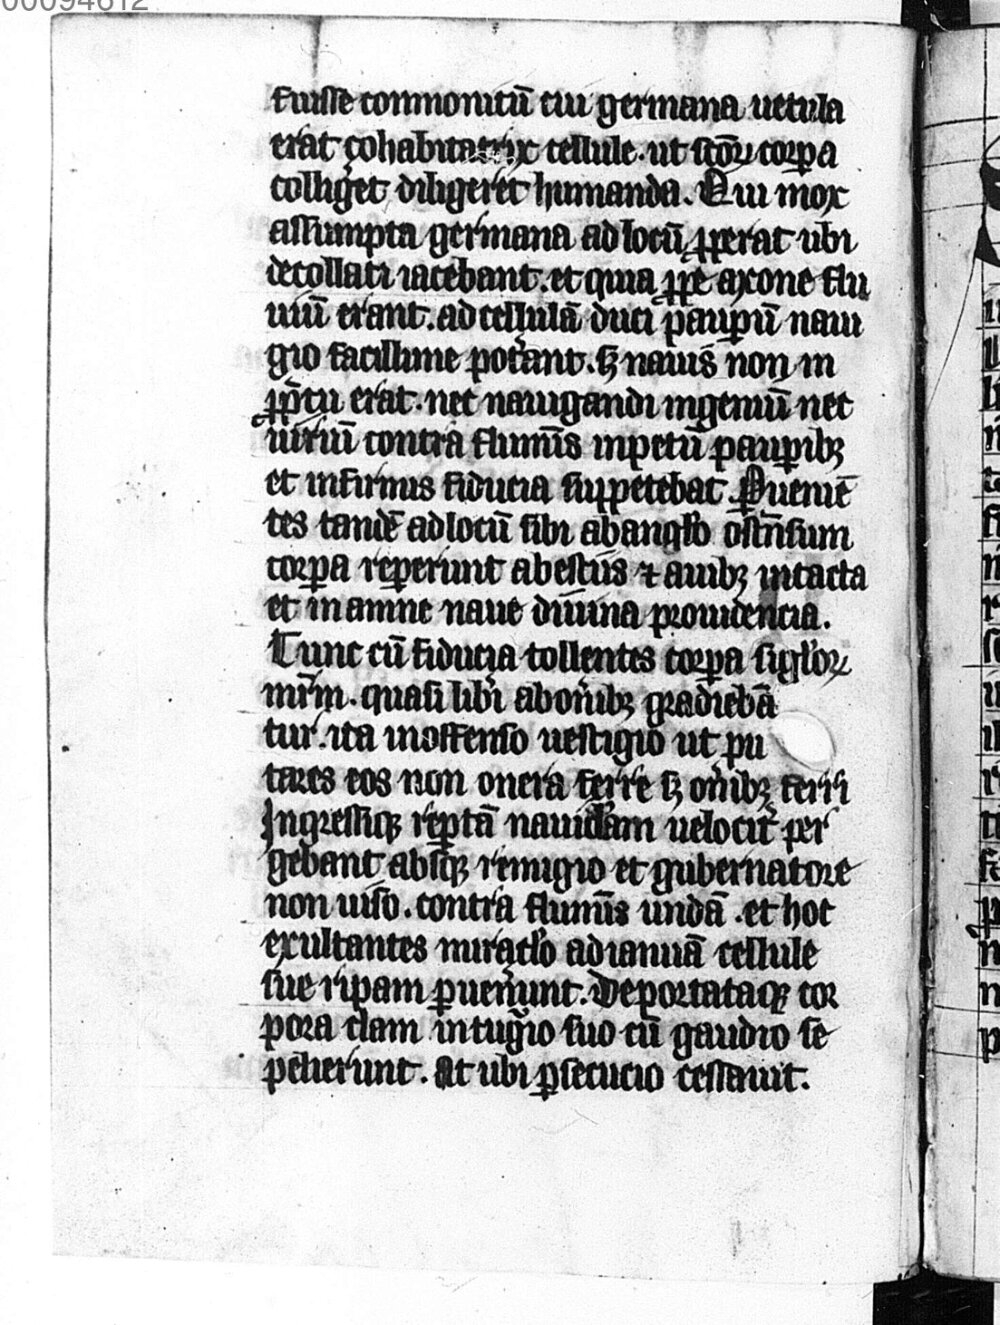 00094612
fuisse commonitū cui germana uetula
erat cohabitatrix cellule. ut sc̄oꝝ corꝑa
colligeret diligeret humanda. Qui mox
assumpta germana ad locū ꝓperat ubi
decollati iacebant. et quia ꝓpe axone flu
uiū erant. ad cellulā duci pauꝑū naui
gio facillime poterant. sꝫ nauis non in
ꝓmptu erat. nec nauigandi ingeniū nec
uiriū contra fluminis inpetū pauꝑibꝫ
et infirmis fiducia suppetebat. Ꝑuenien
tes tandē ad locū sibi ab angl̄o ostensum
corꝑa repererunt a bestiis ⁊ auibꝫ intacta
et in amne naue diuina prouidencia.
Tunc cū fiducia tollentes corꝑa singl̄oꝝ
mr̄m. quasi libi ab onībꝫ gradiebā
tur. ita inoffenso uestigio ut pu
tares eos non onera ferre sꝫ onībꝫ ferri
Ingressiqꝫ reptā nauiclam uelocit̄ per
gebant absqꝫ remigio et gubernatore
non uiso. contra fluminis undā. et hoc
exultantes miracl̄o ad ianuā cellule
sue ripam ꝑuenerunt. Deportataqꝫ cor
pora clam in tugurio suo cū gaudio se
pelierunt. At ubi ꝑsecucio cessauit.